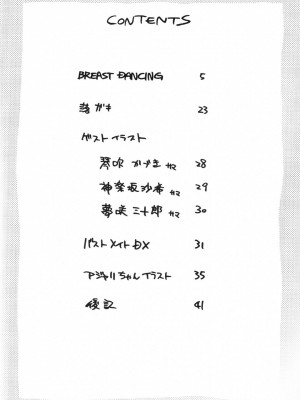 CONTENTS
BREAST DANCING 5
当ガキ 23
ゲストイラスト
琴吹かづき サマ 28
神楽坂沙希 サマ 29
夢咲三十郎 サマ 30
バストメイトDX 31
アシャリちゃんイラスト 35
後記 41